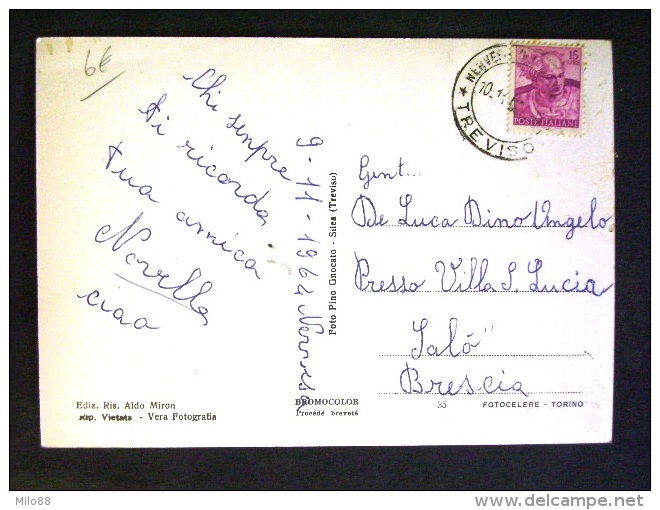 6€
Chi sempre
ti ricorda
tua amica
Novella
ciao
9-11-1962 Nervesa
Foto Pino Gnocato - Silea (Treviso)
NERVESA
10.11
★ TREVISO
15
POSTE ITALIANE
Gent...
De Luca Dino Angelo
Presso Villa S. Lucia
Salò
Brescia
Ediz. Ris. Aldo Miron
Rip. Vietata - Vera Fotografia
BROMOCOLOR
Procédé breveté
35 FOTOCELERE - TORINO
Milo88
delcampe.net